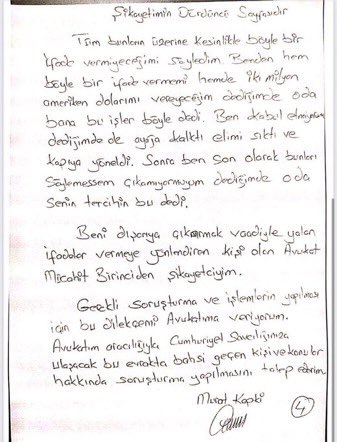 Şikayetimin Dördüncü Sayfasıdır
Tüm bunların üzerine kesinlikle böyle bir
ifade vermiyeceğimi söyledim. Benden hem
böyle bir ifade vermemi hemde iki milyon
amerikan dolarını vereyeceğim dediğimde oda
bana bu işler böyle dedi. Ben kabul etmiyorum
dediğimde de ayağa kalktı elimi sıktı ve
kapıya yöneldi. Sonra ben son olarak bunları
söylemessem çıkamıyormuyum dediğimde oda
senin tercihin bu dedi.
Beni dışarıya çıkarmak vaadiyle yalan
ifadeler vermeye yönlendiren kişi olan Avukat
Mücahit Birinciden şikayetciyim.
Gerekli soruşturma ve işlemlerin yapılması
için bu dilekçemi Avukatıma veriyorum.
Avukatım aracılığıyla Cumhuriyet Savcılığımıza
ulaşacak bu evrakta bahsi geçen kişi ve konular
hakkında soruşturma yapılmasını talep ederim.
Murat Kapki
4